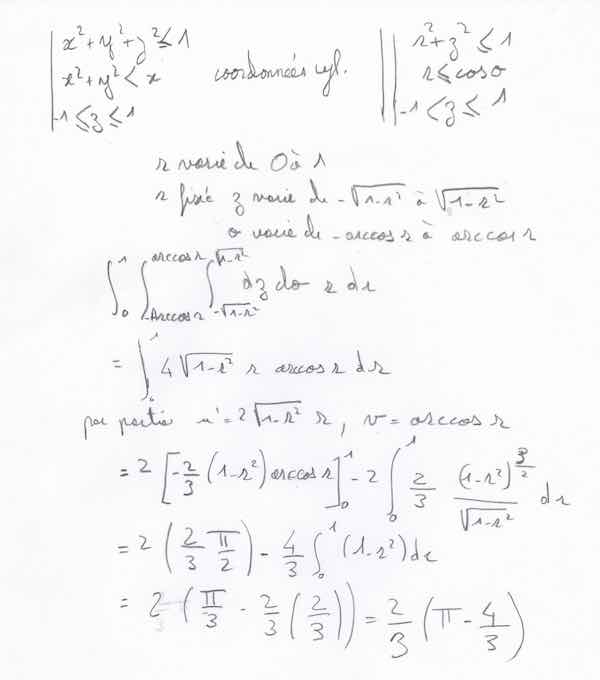 x²+y²+z²≤1 r²+z²≤1
x²+y²<x coordonnées cyl. r≤coso
-1≤z≤1 -1<z≤1
r varie de 0 à 1
r fixé z varie de -√(1-r²) à √(1-r²)
o varie de -arccos r à arccos r
∫₀¹ ∫_{-Arccos r}^{arccos r} ∫_{-√(1-r²)}^{√(1-r²)} dz do r dr
= ∫₀¹ 4√(1-r²) r arccos r dr
par partie u'=2√(1-r²) r, v=arccos r
= 2[-2/3 (1-r²) arccos r]₀¹ - 2 ∫₀¹ 2/3 (1-r²)^{3/2}/√(1-r²) dr
= 2(2/3 π/2) - 4/3 ∫₀¹ (1-r²) dr
= 2(π/3 - 2/3(2/3)) = 2/3(π - 4/3)